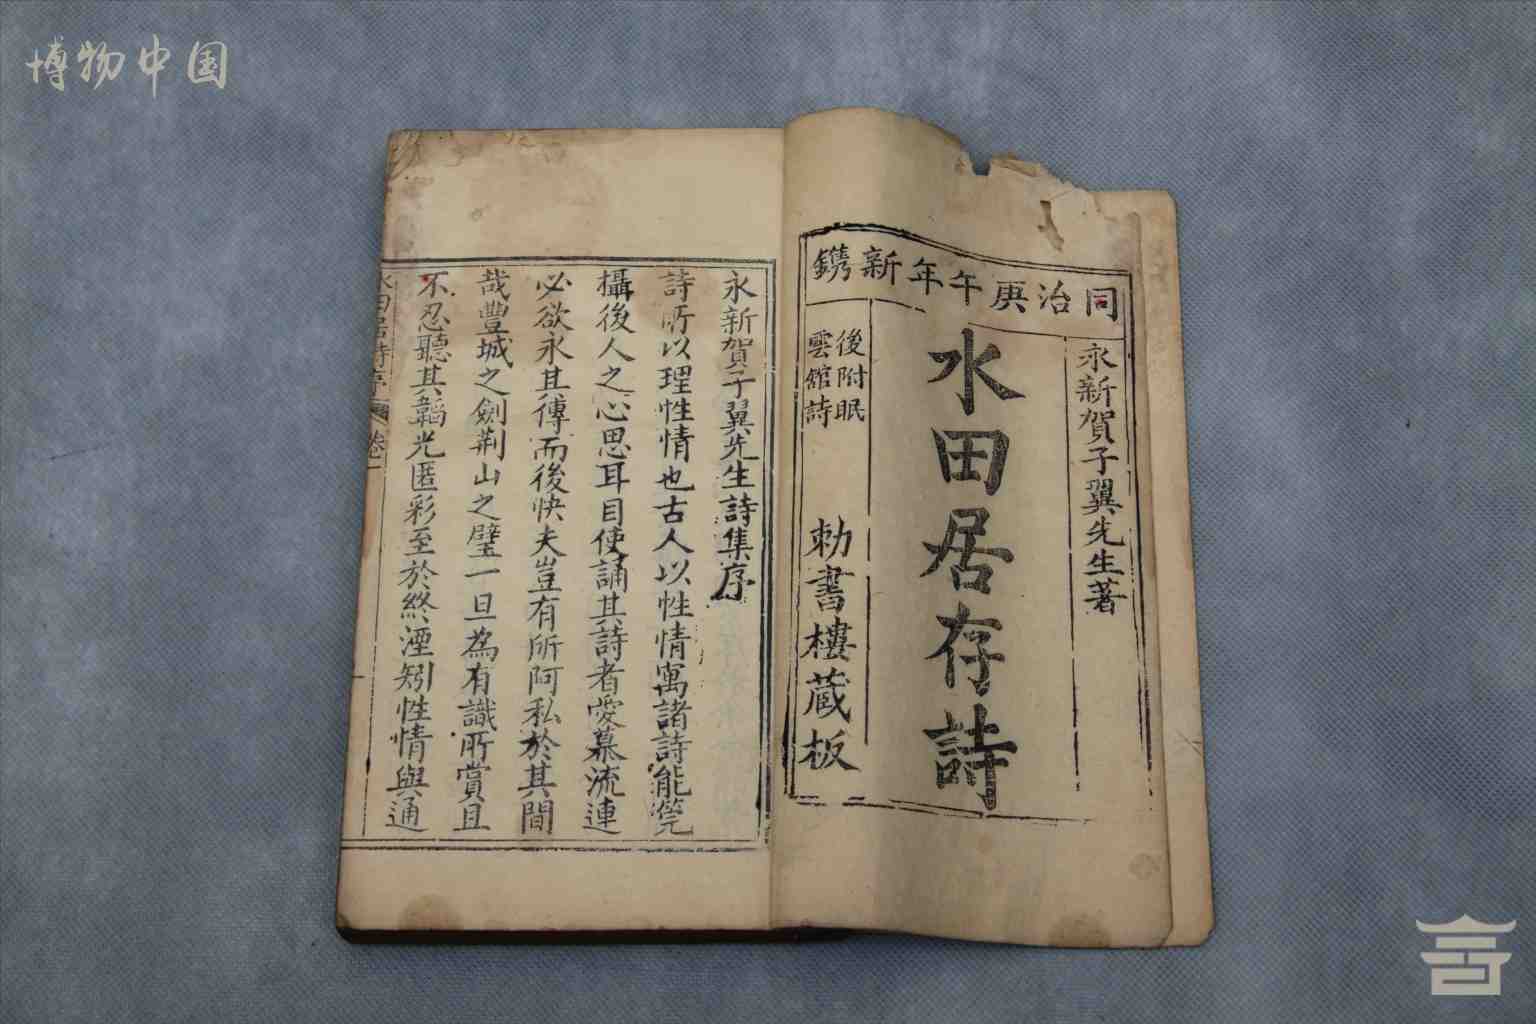 博物中国
同治庚午年新鐫
永新賀子翼先生著
水田居存詩
後附眠
雲館詩
勅書樓藏板
永新賀子翼先生詩集序
詩所以理性情也古人以性情寓諸詩能筦
攝後人之心思耳目使誦其詩者愛慕流連
必欲永其傳而後快夫豈有所阿私於其間
哉豐城之劍荆山之璧一旦為有識所賞且
不忍聽其韜光匿彩至於終湮矧性情與通
水田居詩序 卷一